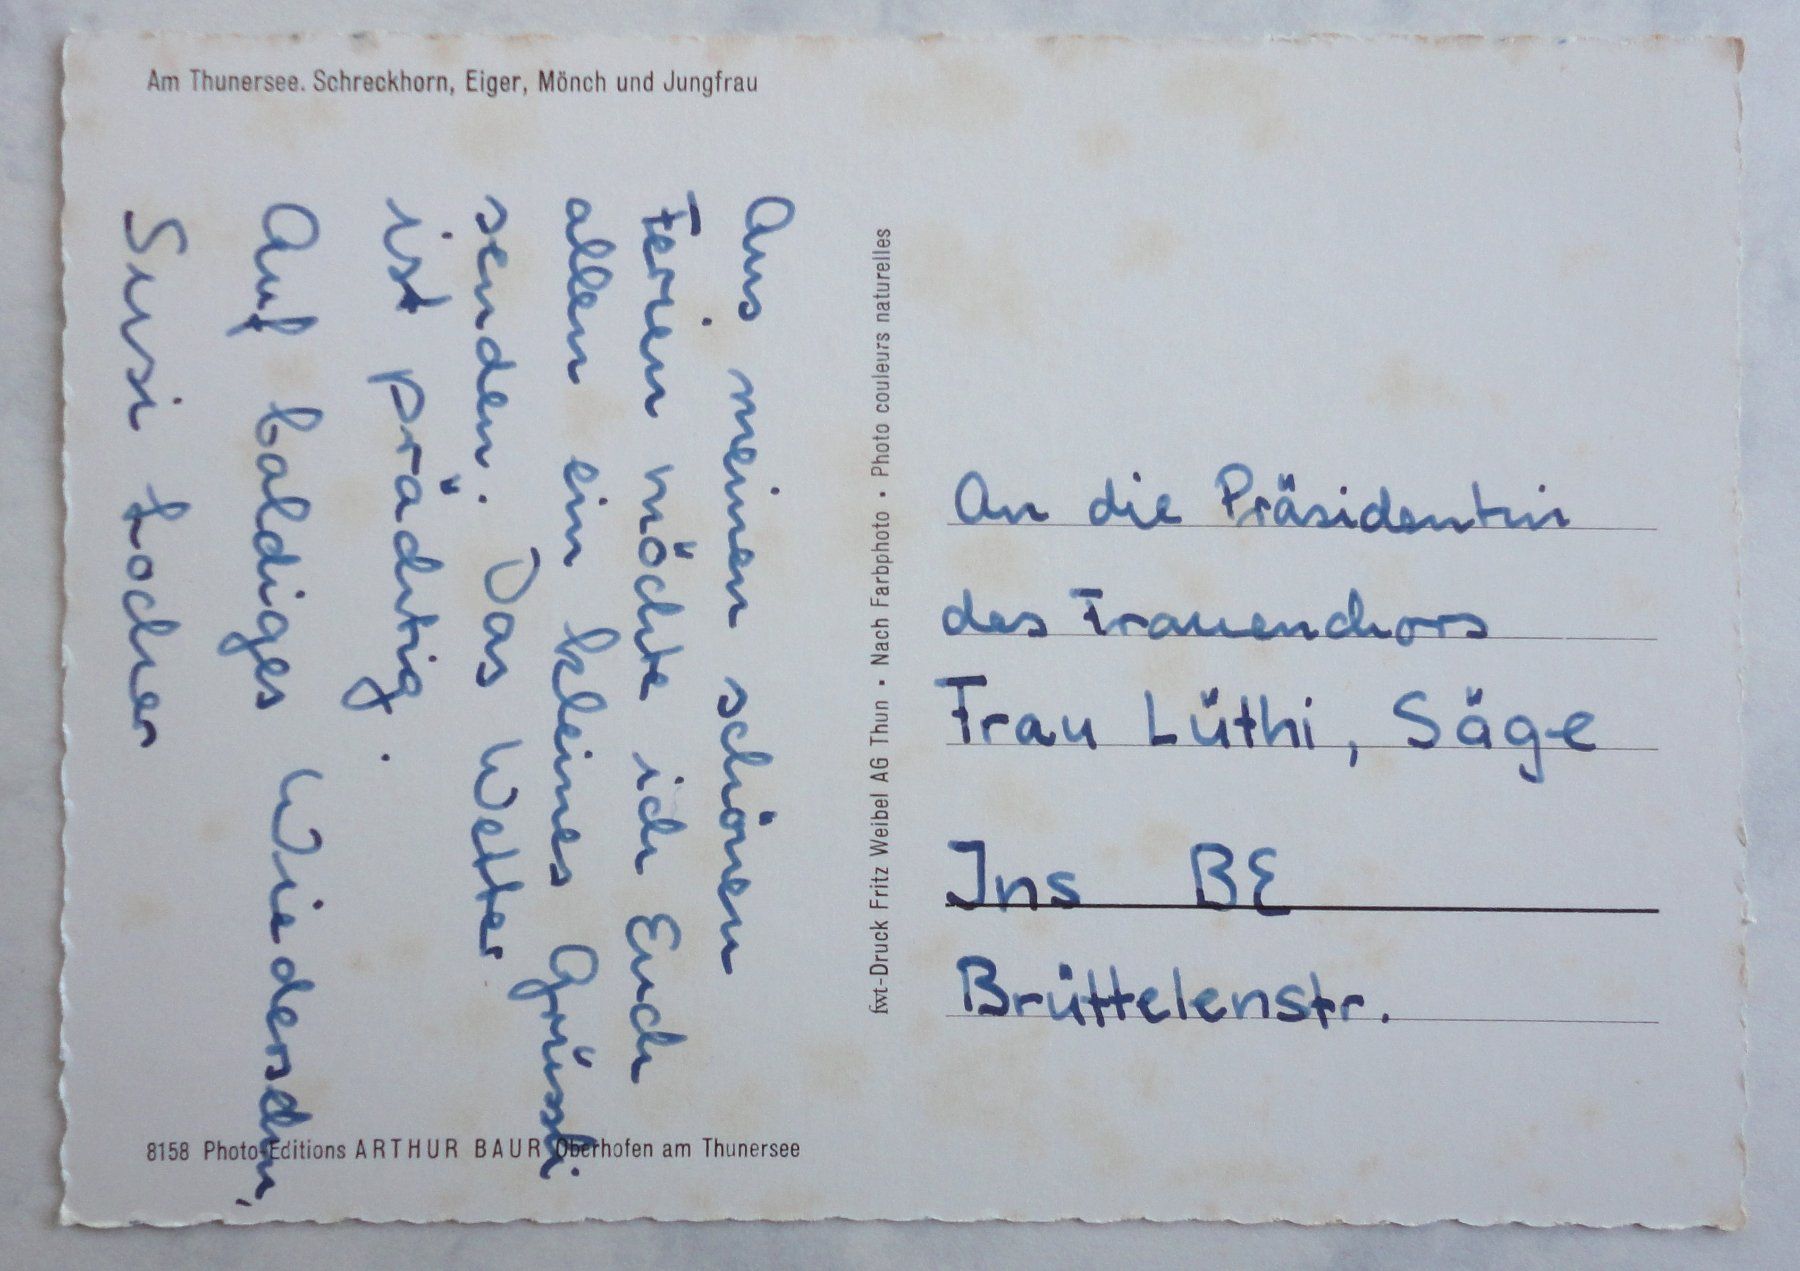 Am Thunersee. Schreckhorn, Eiger, Mönch und Jungfrau
Aus meinen schönen
Ferien möchte ich Euch
allen ein kleines Grüssli
senden. Das Wetter
ist prächtig.
Auf baldiges Wiedersehn,
Susi Locher
8158 Photo-Editions ARTHUR BAUR Oberhofen am Thunersee
fwt-Druck Fritz Weibel AG Thun • Nach Farbphoto • Photo couleurs naturelles
An die Präsidentin
des Frauenchors
Frau Lüthi, Säge
Ins BE
Brüttelenstr.